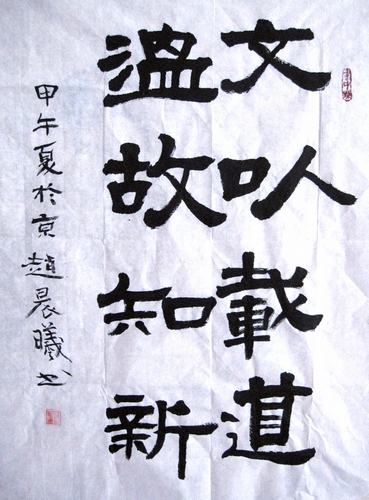 文㕥載道
溫故知新
甲午夏於京趙晨曦书